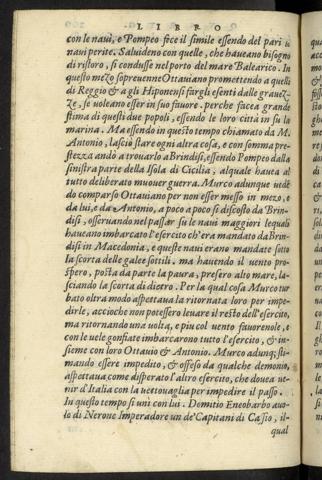 LIBRO
con le navi, e Pompeo fece il simile essendo del pari in
navi perite. Saluideno con quelle, che haveano bisogno
di ristoro, si condusse nel porto del mare Balearico. In
questo mezo sopreuenne Ottauiano promettendo a quelli
di Reggio & a gli Hiponensi fargli esenti dalle grauez-
ze, se uoleano esser in suo fauore. perche facea grande
stima di questi due popoli, essendo le loro città in su la
marina. Ma essendo in questo tempo chiamato da M.
Antonio, lasciò stare ogni altra cosa, e con somma pre-
stezza andò a trouarlo a Brindisi, essendo Pompeo dalla
sinistra parte della Isola di Cicilia, al quale hauea al
tutto deliberato muouer guerra. Murco adunque uede
do comparso Ottauiano per non esser messo in mezo, e
da lui, e da Antonio, a poco a poco si discostò da Brin-
disi, osseruando nel passar su le naui maggiori lequali
haueano imbarcato l'esercito ch'era mandato da Brin
disi in Macedonia, e queste naui erano mandate sotto
la scorta delle galee sottili. ma hauendo il uento pro-
spero, posta da parte la paura, presero alto mare, la-
sciando la scorta di dietro. Per la qual cosa Murco tur
bato oltra modo aspettaua la ritornata loro per impe-
dirle, accioche non potessero leuare il resto dell'esercito,
ma ritornando una uolta, e piu col uento fauoreuole, e
con le uele gonfiate imbarcarono tutto l'esercito, & in-
sieme con loro Ottauio & Antonio. Murco adunq; sti-
mando essere impedito, & offeso da qualche demonio,
aspettaua come disperato l'altro esercito, che douea ue-
nir d'Italia con la uettouaglia per impedire il passo.
In questo tempo si unì con lui. Domitio Eneobarbo auo-
lo di Nerone Imperadore un de' Capitani di Casio, il-
qual